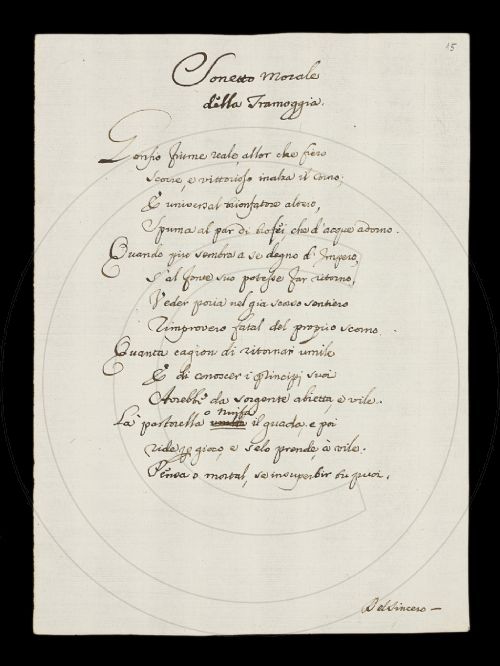 15
Sonetto Morale
della Tramoggia.
Gonfio fiume reale, allor che fiero
scorre, e vittorioso inalza il corno,
E universal trionfatore altero,
Spuma al par di trofei, che d'acque adorno.
Quando più sembra a se degno d'Impero,
s'al fonte suo potesse far ritorno,
Veder poria nel già scorso sentiero
Rimprovero fatal del proprio scorno.
Quanta cagion di ritornar umile
E di conoscer i principj suoi
Avrebbe da sorgente abietta, e vile.
La pastorella o ninfa il guada, e poi
ride per gioco e selo prende à vile.
Pensa o mortal, se insuperbir tu puoi.
Del Sincero —